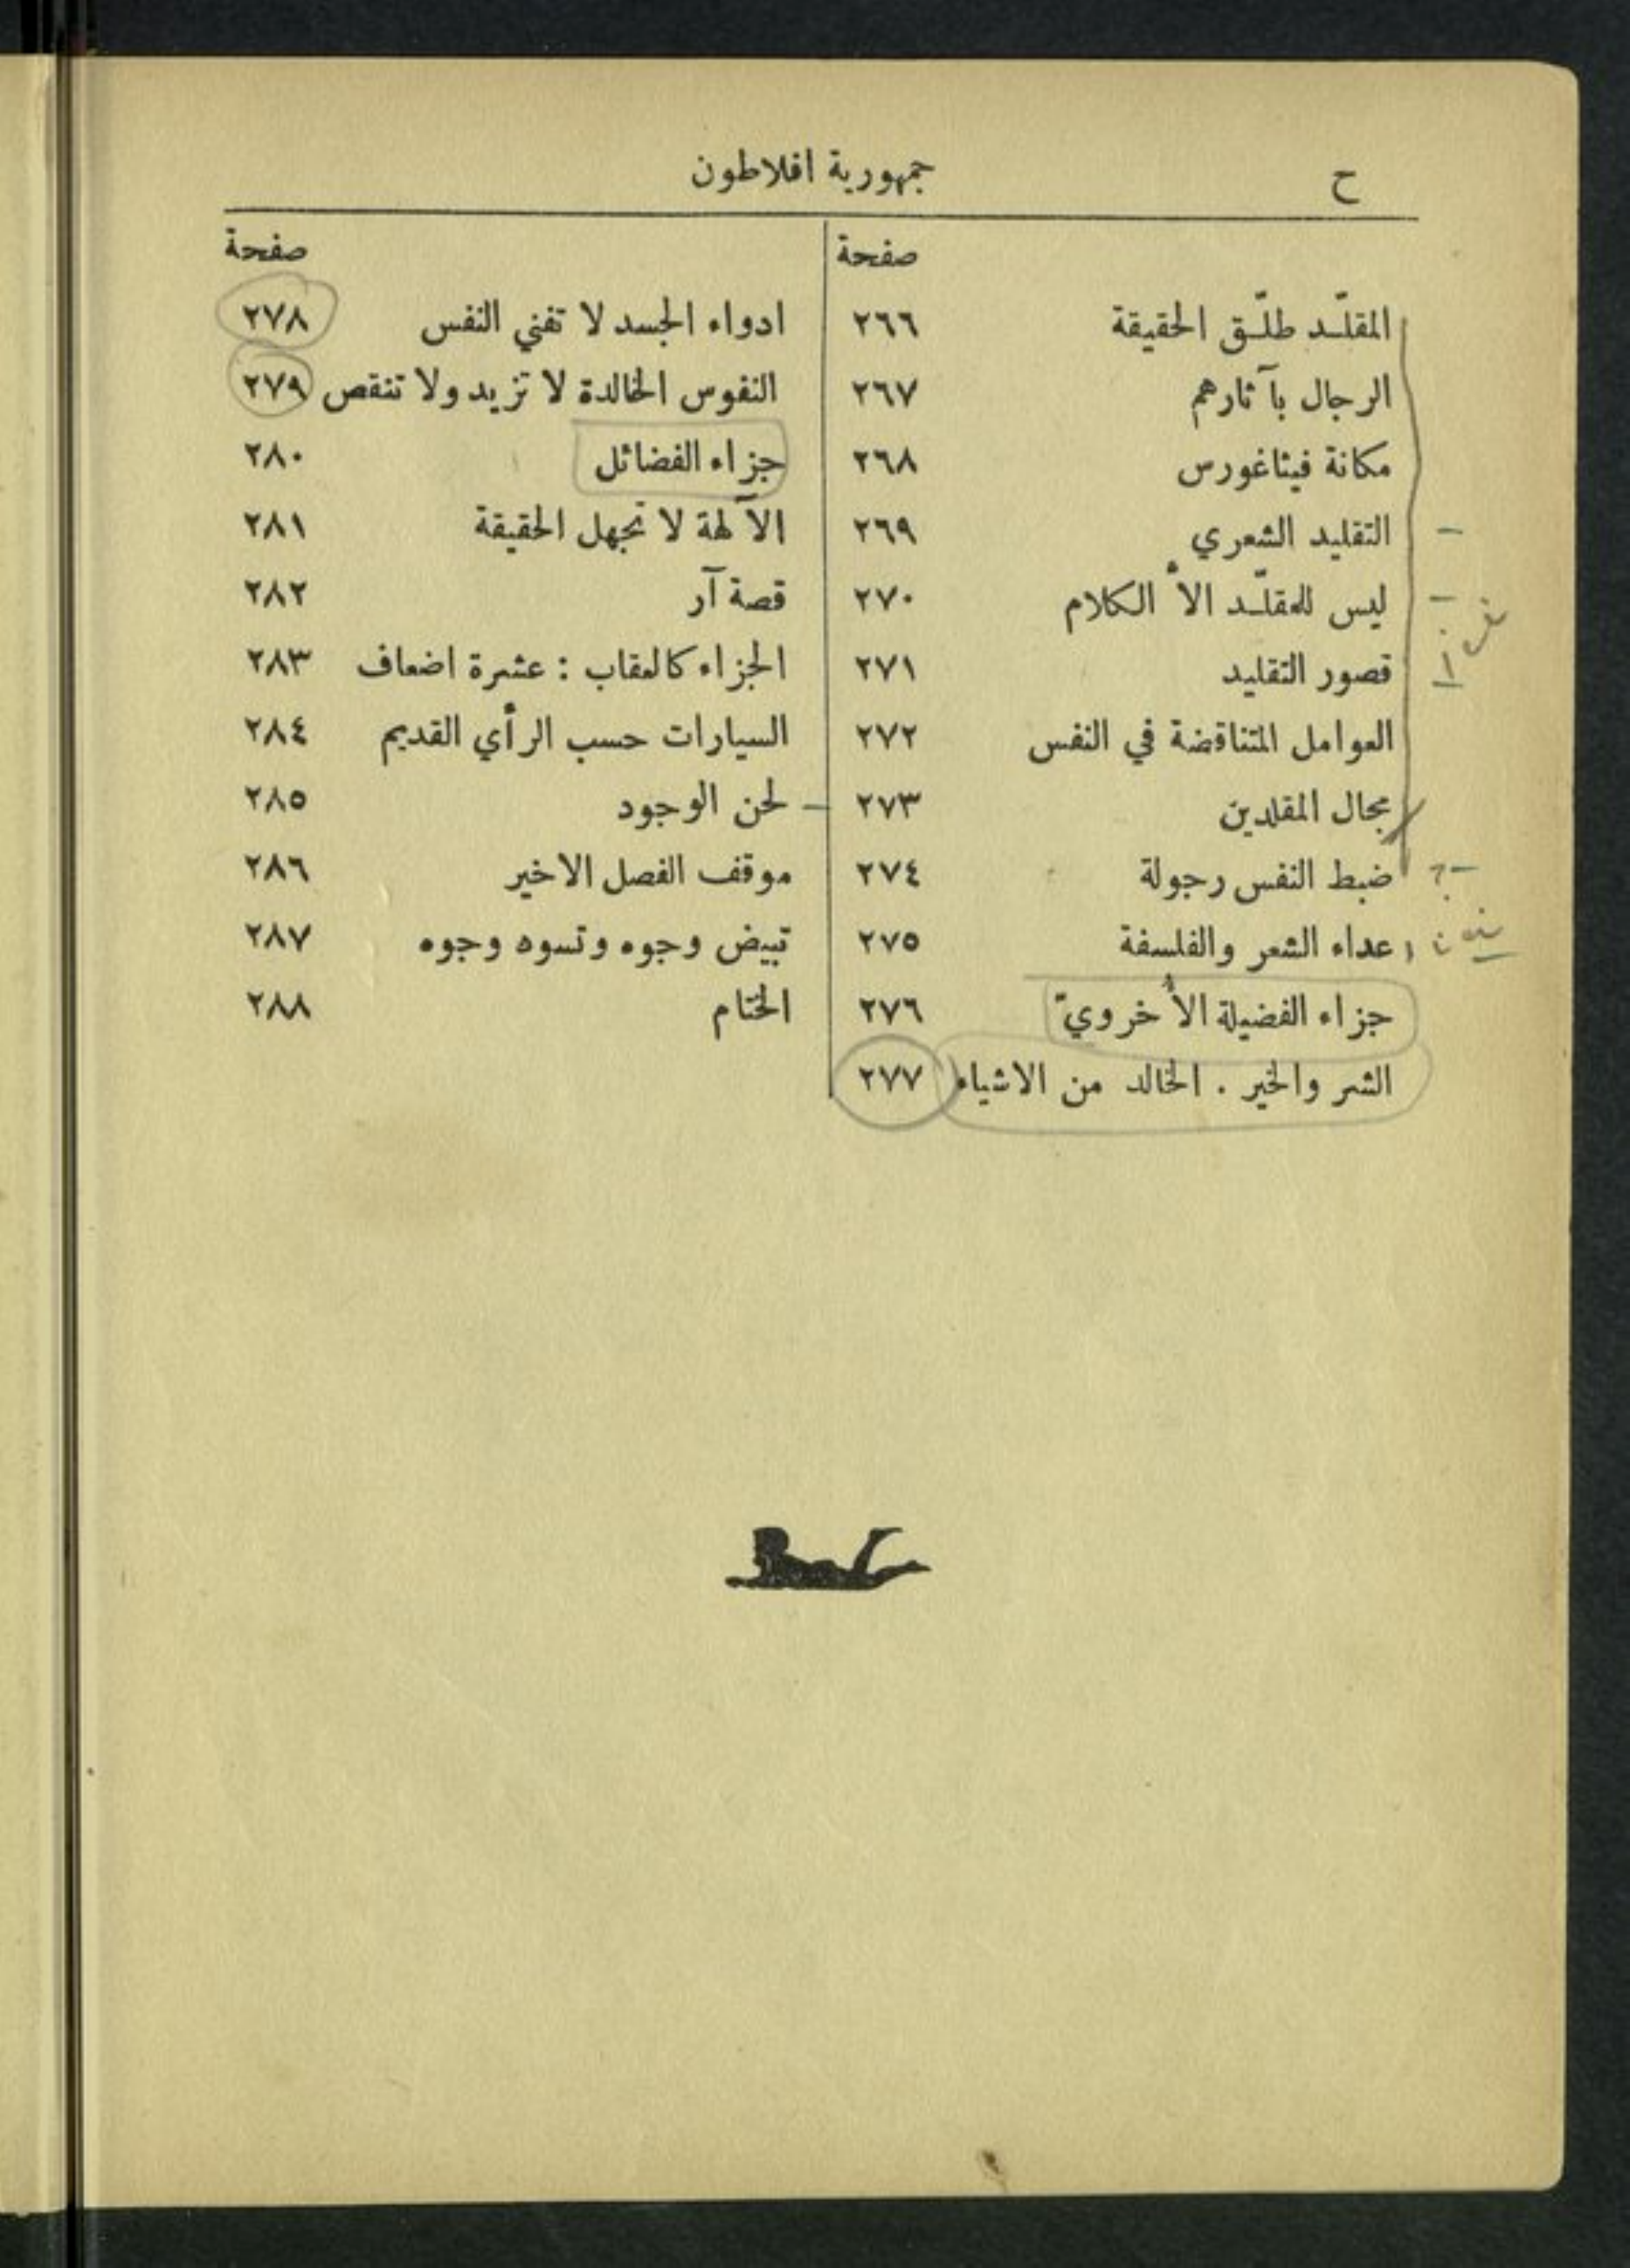 ح
جمهورية افلاطون
صفحة
المقلّـد طلّـق الحقيقة ٢٦٦
الرجال بآثارهم ٢٦٧
مكانة فيثاغورس ٢٦٨
التقليد الشعري ٢٦٩
ليس للمقلّـد الاّ الكلام ٢٧٠
قصور التقليد ٢٧١
العوامل المتناقضة في النفس ٢٧٢
مجال المقلدين ٢٧٣
ضبط النفس رجولة ٢٧٤
عداء الشعر والفلسفة ٢٧٥
جزاء الفضيلة الأخرويّ ٢٧٦
الشر والخير . الخالد من الاشياء ٢٧٧
صفحة
ادواء الجسد لا تفني النفس ٢٧٨
النفوس الخالدة لا تزيد ولا تنقص ٢٧٩
جزاء الفضائل ٢٨٠
الآلهة لا تجهل الحقيقة ٢٨١
قصة آر ٢٨٢
الجزاء كالعقاب : عشرة اضعاف ٢٨٣
السيارات حسب الرأي القديم ٢٨٤
لحن الوجود ٢٨٥
موقف الفصل الاخير ٢٨٦
تبيض وجوه وتسوه وجوه ٢٨٧
الختام ٢٨٨